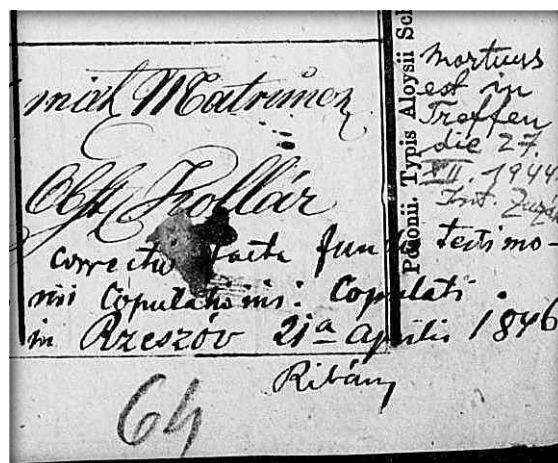 Matrimon
Obst. Kollár
correctio facta fun testimo-
nii Copulationis: Copulati
in Rzeszóv 21a aprilis 1846
Ribány
64
Posonii. Typis Aloysii Sch
Mortuus
est in
Treffen
die 27.
XII. 1944.